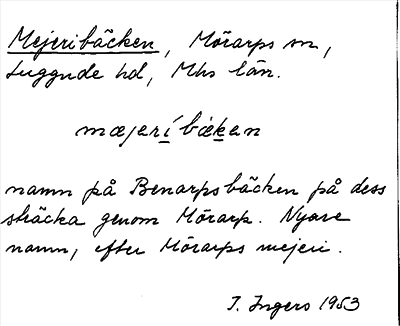 Mejeribäcken, Mörarps sn,
Luggude hd, Mhs län.
mæjerí bæken
namn på Benarpsbäcken på dess
sträcka genom Mörarp. Nyare
namn, efter Mörarps mejeri.
I. Ingers 1953